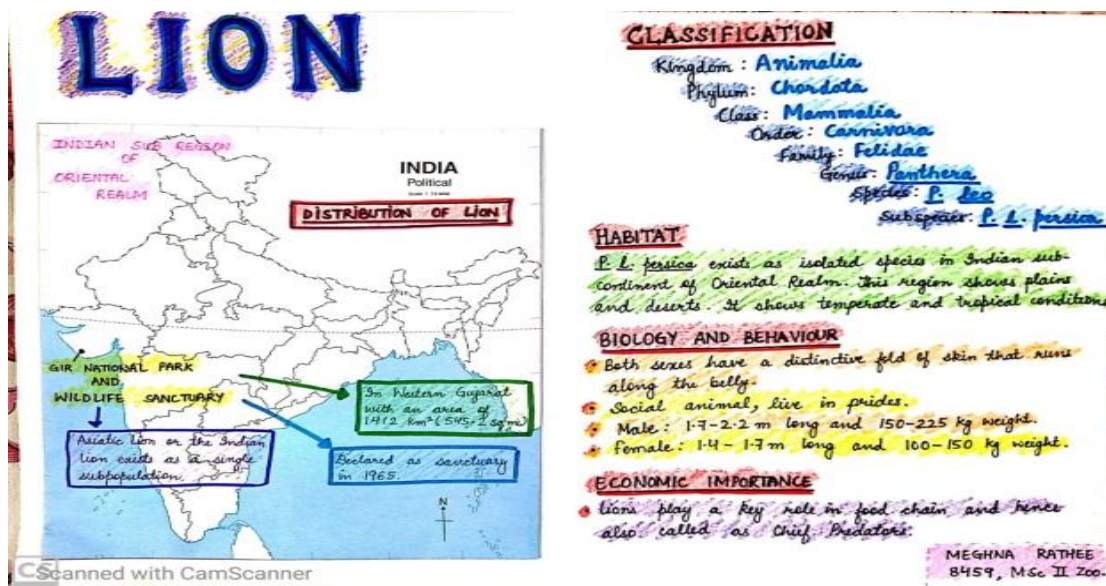 LION
INDIAN SUB REGION
OF
ORIENTAL
REALM
INDIA
Political
DISTRIBUTION OF LION
GIR NATIONAL PARK
AND
WILDLIFE SANCTUARY
In Western Gujarat
with an area of
1412 km² (545.2 sq mi)
Asiatic lion or the Indian
lion exists as a single
subpopulation.
Declared as sanctuary
in 1965.
N
CS Scanned with CamScanner
CLASSIFICATION
Kingdom: Animalia
Phylum: Chordata
Class: Mammalia
Order: Carnivora
Family: Felidae
Genus: Panthera
Species: P. leo
Subspecies: P. L. persica
HABITAT
P. L. persica exists as isolated species in Indian sub-
continent of Oriental Realm. This region shows plains
and deserts. It shows temperate and tropical conditions
BIOLOGY AND BEHAVIOUR
Both sexes have a distinctive fold of skin that runs
along the belly.
Social animal, live in prides.
Male: 1.7-2.2 m long and 150-225 kg weight.
Female: 1.4-1.7 m long and 100-150 kg weight.
ECONOMIC IMPORTANCE
Lions play a key role in food chain and hence
also called as Chief Predators.
MEGHNA RATHEE
8459, MSc II Zoo-